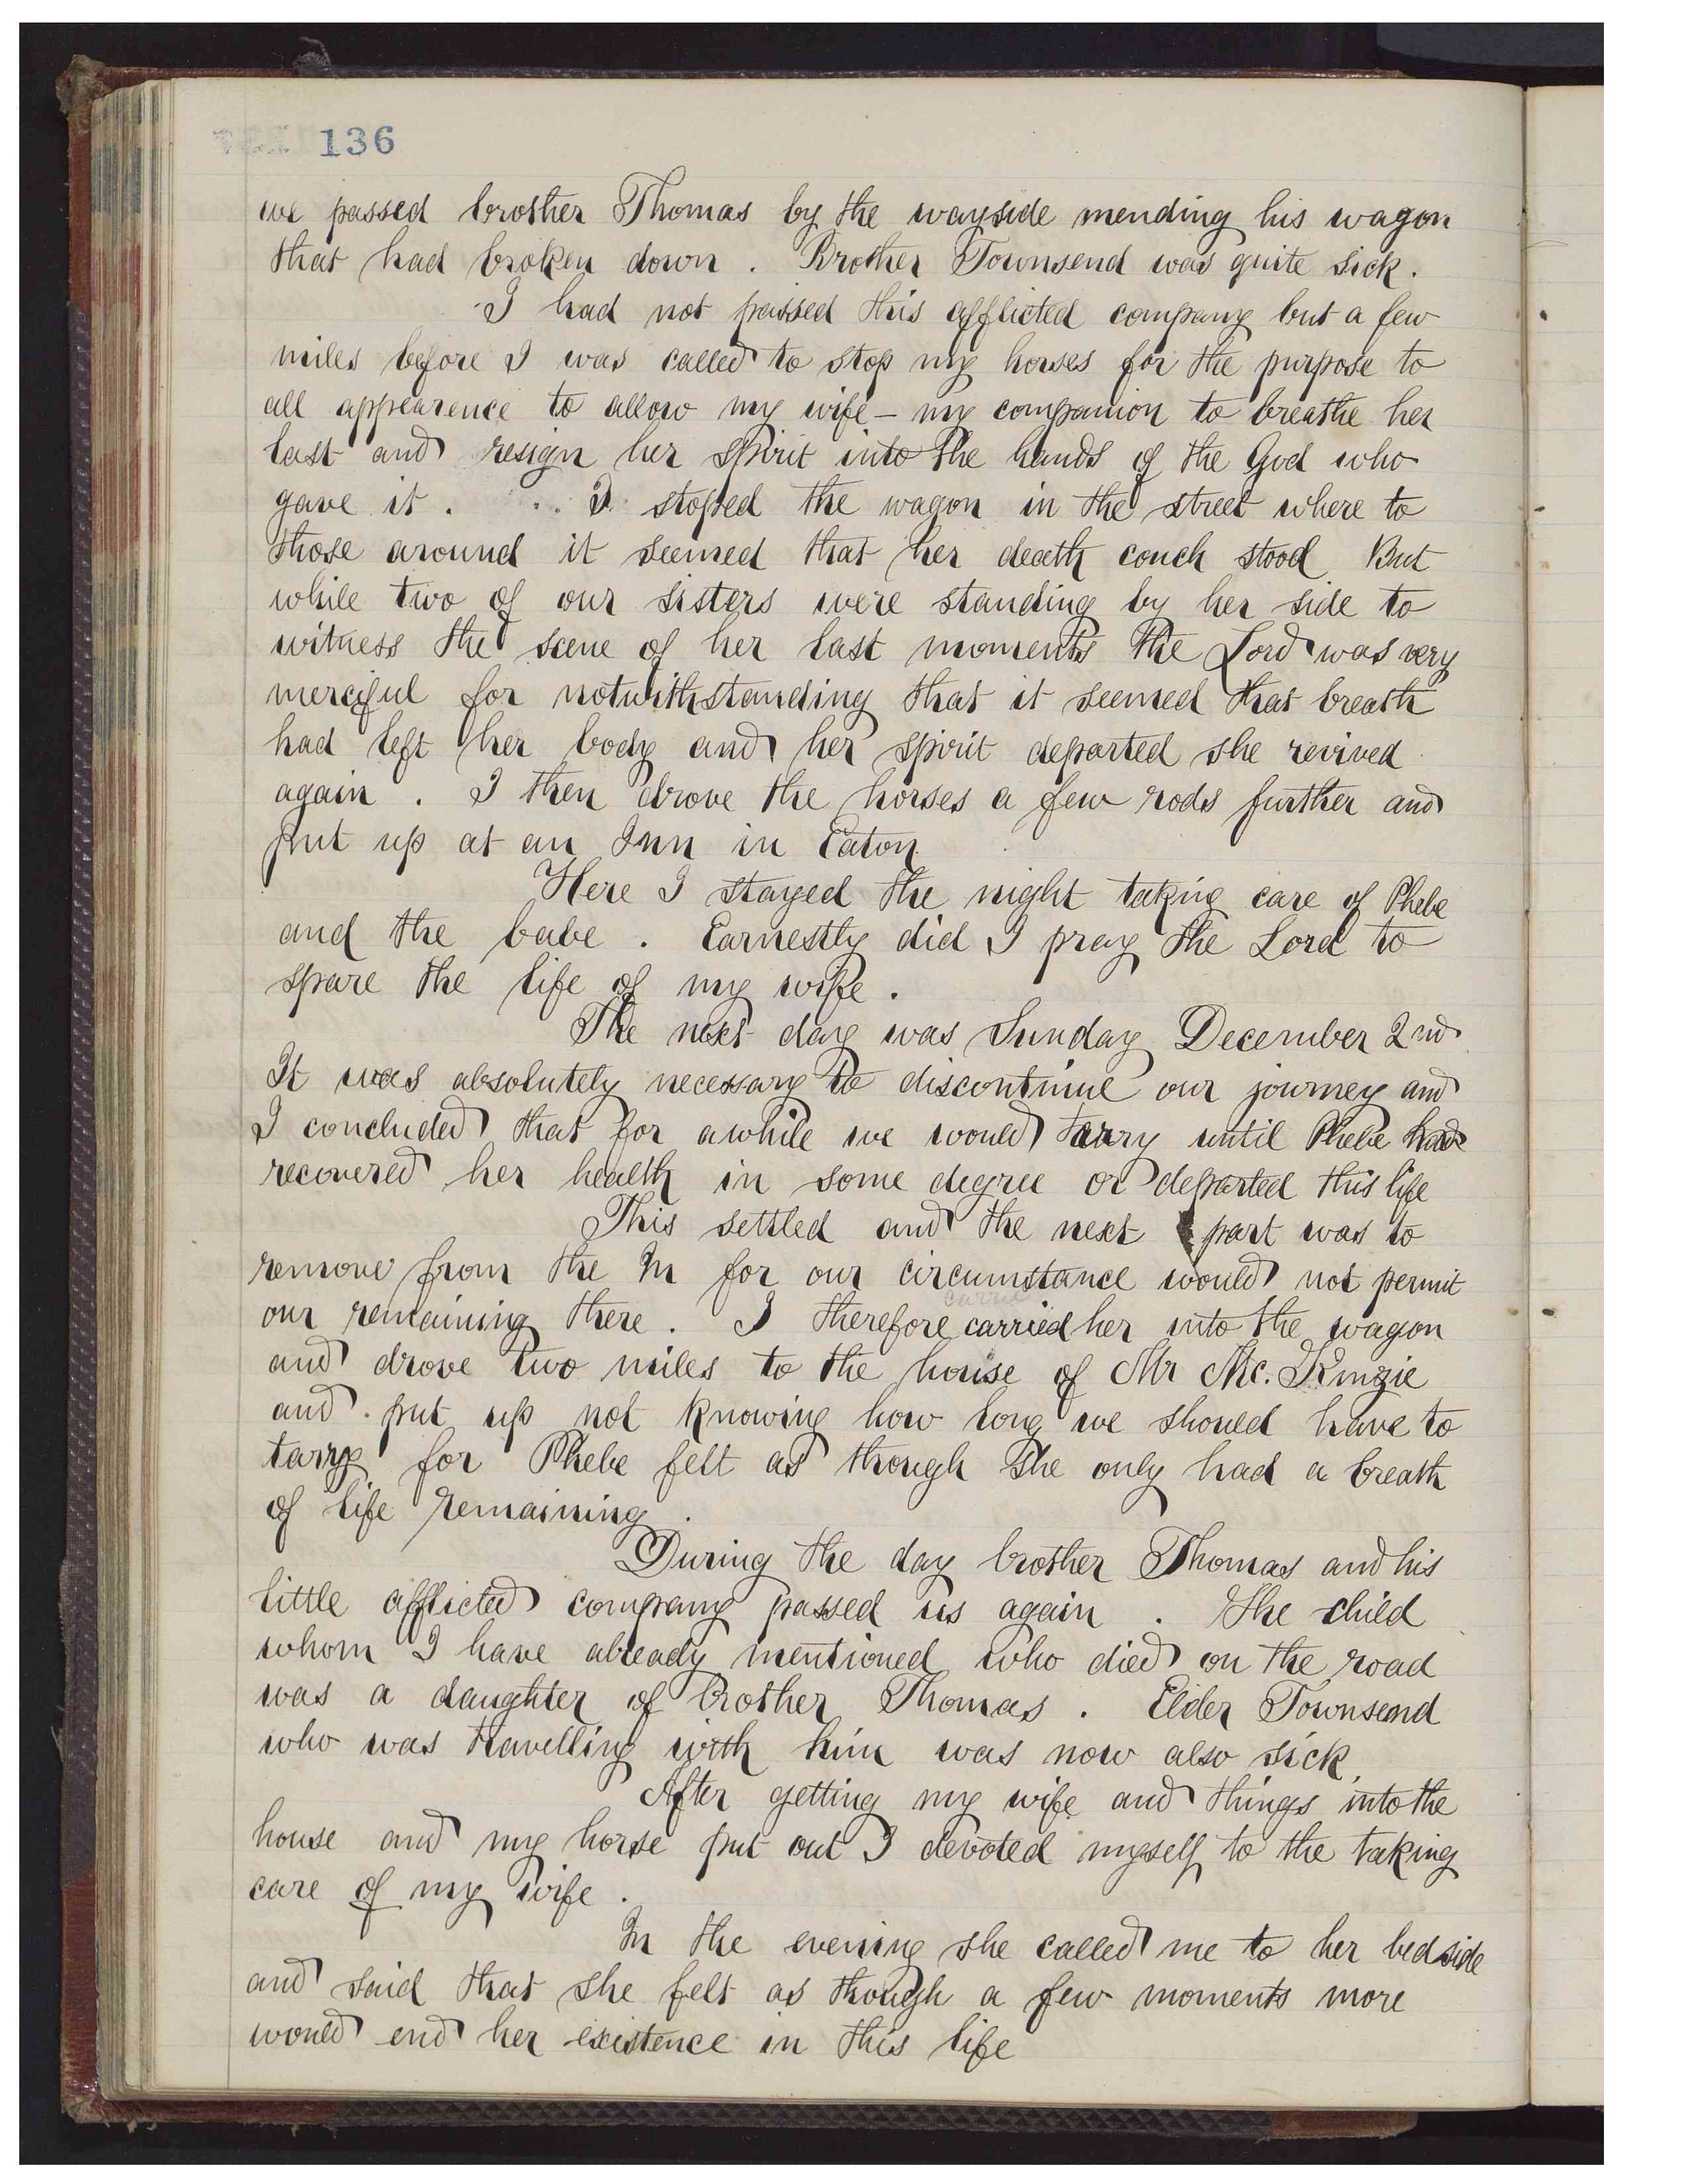 136
we passed brother Thomas by the wayside mending his wagon
that had broken down . Brother Townsend was quite sick .
I had not passed this afflicted company but a few
miles before I was called to stop my horses for the purpose to
all appearence to allow my wife - my companion to breathe her
last and resign her spirit into the hands of the God who
gave it . I stoped the wagon in the street where to
those around it seemed that her death couch stood But
while two of our sisters were standing by her side to
witness the scene of her last moments the Lord was very
merciful for notwithstanding that it seemed that breath
had left her body and her spirit departed she revived
again . I then drove the horses a few rods further and
put up at an Inn in Eaton
Here I stayed the night taking care of Phebe
and the babe . Earnestly did I pray the Lord to
spare the life of my wife .
The next day was Sunday December 2nd
It was absolutely necessary to discontinue our journey and
I concluded that for awhile we would tarry until Phebe had
recovered her health in some degree or departed this life
This settled and the next part was to
remove from the In for our circumstance would not permit
our remaining there . I therefore carried her into the wagon
and drove two miles to the house of Mr Mc. Kinzie
and put up not knowing how long we should have to
tarry for Phebe felt as though she only had a breath
of life remaining .
During the day brother Thomas and his
little afflicted company passed us again . The child
whom I have already mentioned who died on the road
was a daughter of brother Thomas . Elder Townsend
who was travelling with him was now also sick
After getting my wife and things into the
house and my horse put out I devoted myself to the taking
care of my wife .
In the evening she called me to her bedside
and said that she felt as though a few moments more
would end her existence in this life